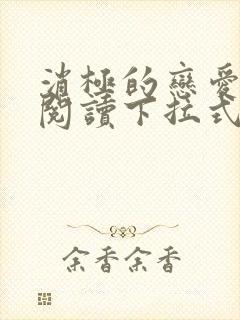 消極的戀愛
閱讀下拉式
余香余香